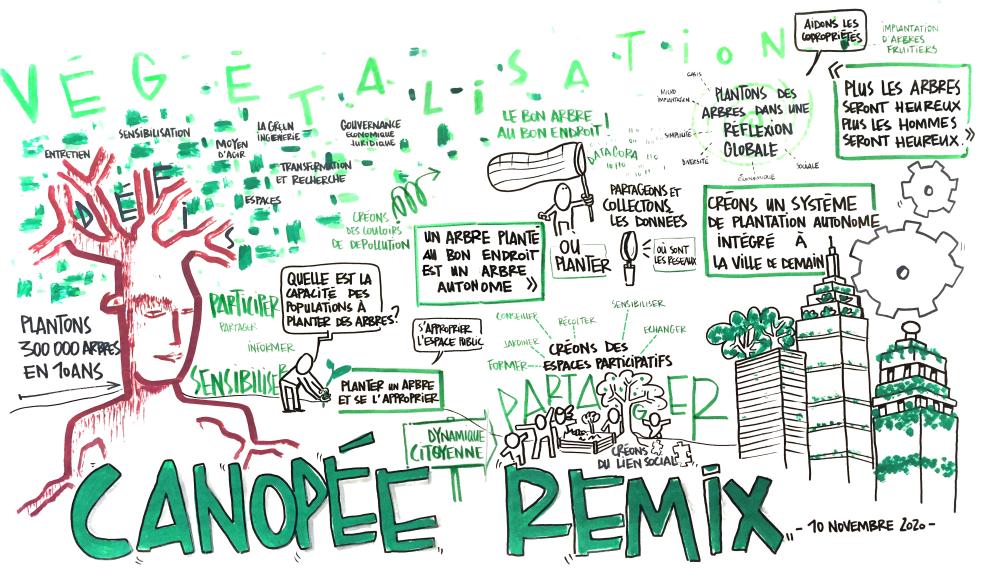 VÉGÉTALISATION
AIDONS LES
COPROPRIÉTÉS
IMPLANTATION
D'ARBRES
FRUITIERS
« PLUS LES ARBRES
SERONT HEUREUX
PLUS LES HOMMES
SERONT HEUREUX. »
PLANTONS DES
ARBRES DANS UNE
RÉFLEXION
GLOBALE
MICRO
IMPLANTATION
SIMPLICITÉ
DIVERSITÉ
ÉCONOMIQUE
SOCIALE
LE BON ARBRE
AU BON ENDROIT !
DATAGORA
PARTAGEONS ET
COLLECTONS
LES DONNÉES
OÙ
PLANTER
OÙ SONT
LES RÉSEAUX
SENSIBILISATION
ENTRETIEN
LA GREEN
INGÉNIERIE
MOYEN
D'AGIR
GOUVERNANCE
ÉCONOMIQUE
JURIDIQUE
TRANSFORMATION
ET RECHERCHE
ESPACES
DÉFIS
CRÉONS
DES COULOIRS
DE DÉPOLLUTION
UN ARBRE PLANTÉ
AU BON ENDROIT
EST UN ARBRE
AUTONOME »
CRÉONS UN SYSTÈME
DE PLANTATION AUTONOME
INTÉGRÉ À
LA VILLE DE DEMAIN
PLANTONS
300 000 ARBRES
EN 10 ANS
PARTICIPER
PARTAGER
INFORMER
SENSIBILISER
QUELLE EST LA
CAPACITÉ DES
POPULATIONS À
PLANTER DES ARBRES?
PLANTER UN ARBRE
ET SE L'APPROPRIER
S'APPROPRIER
L'ESPACE PUBLIC
CONSEILLER
RÉCOLTER
SENSIBILISER
ECHANGER
JARDINER
FORMER
CRÉONS DES
ESPACES PARTICIPATIFS
PARTAGER
DYNAMIQUE
CITOYENNE
CRÉONS
DU LIEN SOCIAL
CANOPÉE REMIX
- 10 NOVEMBRE 2020 -